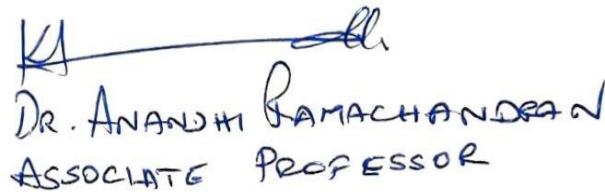 DR. ANANDHI RAMACHANDRAN
ASSOCIATE PROFESSOR